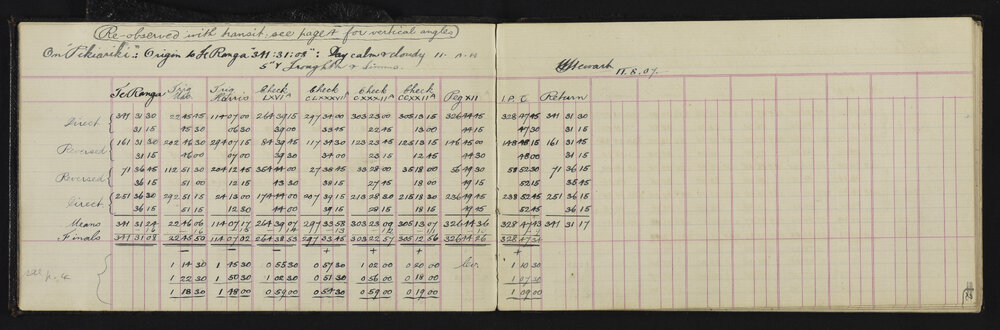 (Re-observed with transit; see page 4 for vertical angles)
On "Pikiariki": Origin to Te Ranga "341:31:08": Day calm & cloudy 11 - 8 - 07
5" Y Troughton & Simms.
11.8.07.
Te Ranga Trig Trig Harris Check LXVI A Check CLXXXVII A Check CXXXII A Check CCXXII A Peg XII I.P. C Return
Direct 341 31 30 22 45 45 114 07 00 264 39 15 297 34 00 303 23 00 305 13 15 326 44 45 328 47 45 341 31 30
31 15 45 30 06 30 39 00 33 45 22 45 13 00 44 15 47 30 31 15
Reversed 161 31 30 202 46 30 294 07 15 84 39 45 117 34 30 123 23 45 125 13 15 146 45 00 148 48 15 161 31 45
31 15 46 00 07 00 39 30 34 00 23 15 12 45 44 30 48 00 31 15
Reversed 71 36 45 112 51 30 204 12 45 354 44 00 27 38 45 33 28 00 35 18 00 56 49 30 58 52 30 71 36 15
36 15 51 00 12 15 43 30 38 15 27 45 18 00 49 15 52 15 35 45
Direct 251 36 30 292 51 15 24 13 00 174 44 00 207 39 15 213 28 30 215 18 30 236 49 45 238 52 45 251 36 15
36 15 51 15 12 30 44 00 39 15 28 15 18 15 49 45 52 45 36 15
Means 341 31 24 22 46 06 114 07 17 264 39 07 297 33 58 303 23 303 305 13 07 326 44 36 328 47 43 341 31 17
Finals 341 31 08 22 45 50 114 07 02 264 38 53 297 33 45 303 22 57 305 12 56 326 44 26 328 47 34
− − − + + + +
1 14 30 1 45 30 0 55 30 0 57 30 1 02 00 0 20 00 1 10 30
see p. 4 1 22 30 1 50 30 1 02 30 0 51 30 0 56 00 0 18 00 1 07 30
1 18 30 1 48 00 0 59 00 0 54 30 0 59 00 0 19 00 1 09 00